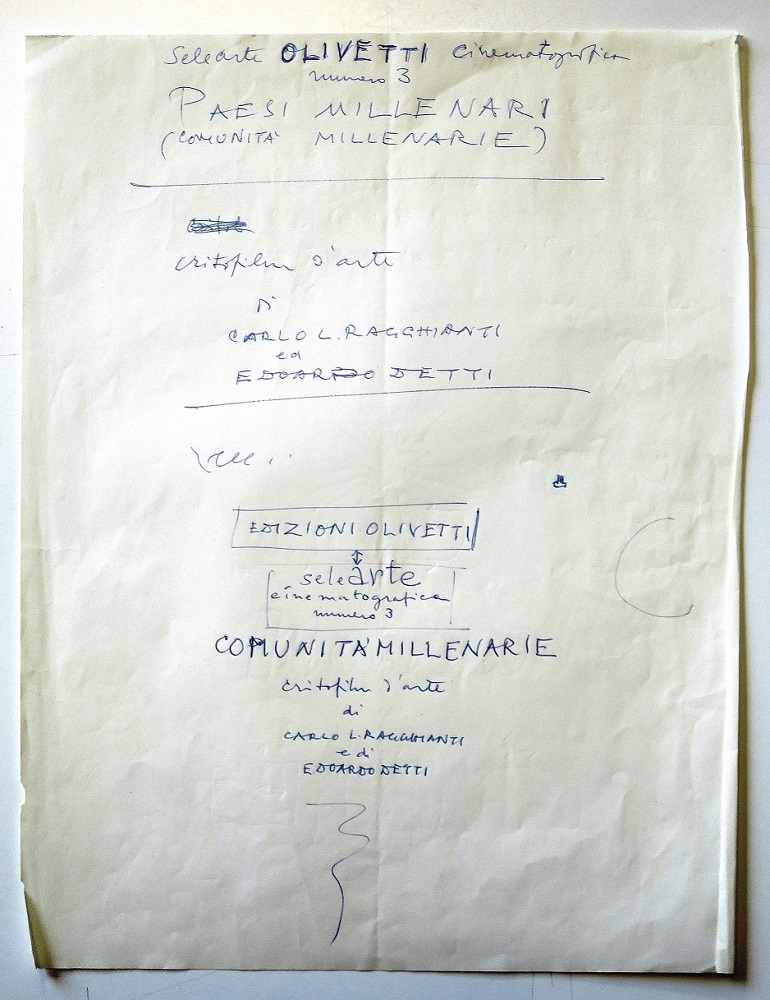 selearte OLIVETTI cinematografica
numero 3
PAESI MILLENARI
(COMUNITÀ MILLENARIE)
critofilm d'arte
di
CARLO L. RAGGHIANTI
ed
EDOARDO DETTI
EDIZIONI OLIVETTI
selearte
cinematografica
numero 3
COMUNITA' MILLENARIE
critofilm d'arte
di
CARLO L. RAGGHIANTI
e di
EDOARDO DETTI